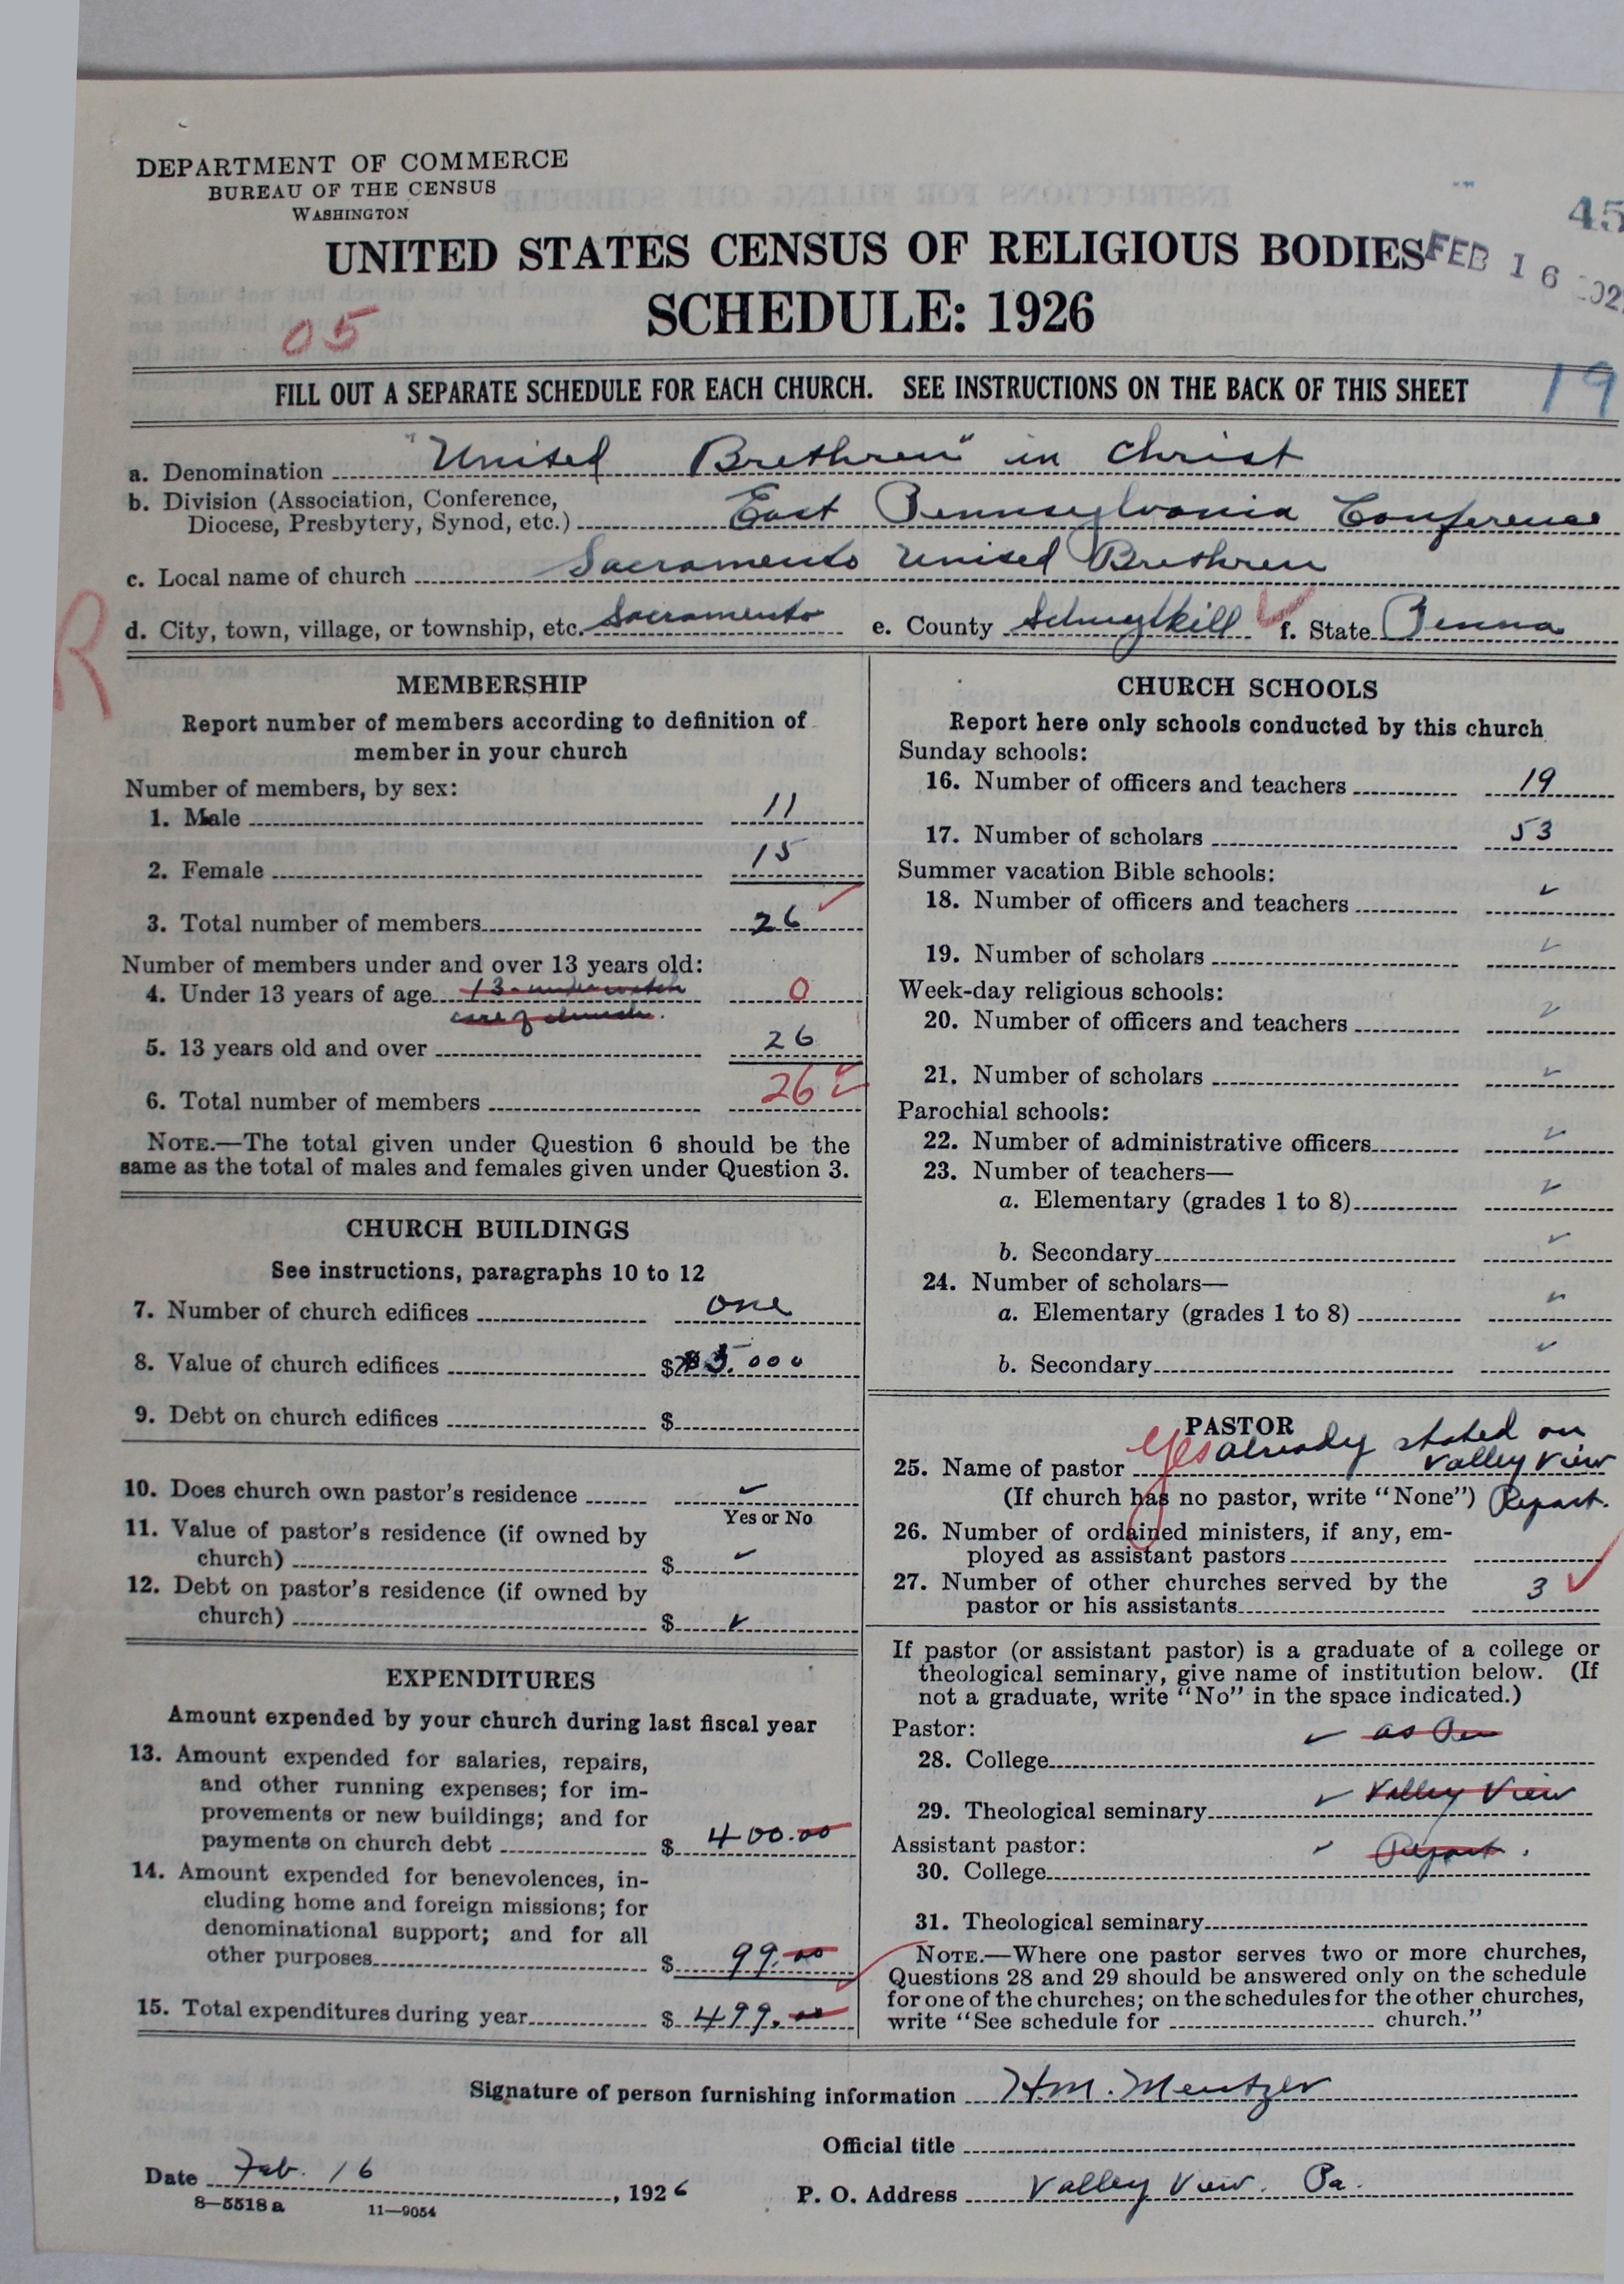 DEPARTMENT OF COMMERCE
BUREAU OF THE CENSUS
WASHINGTON
45
UNITED STATES CENSUS OF RELIGIOUS BODIES
FEB 16
SCHEDULE: 1926
05
FILL OUT A SEPARATE SCHEDULE FOR EACH CHURCH. SEE INSTRUCTIONS ON THE BACK OF THIS SHEET
19
a. Denomination "United Brethren" in Christ
b. Division (Association, Conference,
Diocese, Presbytery, Synod, etc.) East Pennsylvania Conference
c. Local name of church Sacramento United Brethren
R
d. City, town, village, or township, etc. Sacramento e. County Schuylkill ✓ f. State Penna
MEMBERSHIP
Report number of members according to definition of
member in your church
Number of members, by sex:
1. Male 11
2. Female 15
3. Total number of members 26 ✓
Number of members under and over 13 years old:
4. Under 13 years of age 13 - under watch 0
care of church.
5. 13 years old and over 26
6. Total number of members 26 ✓
NOTE.—The total given under Question 6 should be the
same as the total of males and females given under Question 3.
CHURCH BUILDINGS
See instructions, paragraphs 10 to 12
7. Number of church edifices one
8. Value of church edifices $ 5.000
9. Debt on church edifices $
10. Does church own pastor's residence ✓
Yes or No
11. Value of pastor's residence (if owned by
church) $ ✓
12. Debt on pastor's residence (if owned by
church) $ ✓
EXPENDITURES
Amount expended by your church during last fiscal year
13. Amount expended for salaries, repairs,
and other running expenses; for im-
provements or new buildings; and for
payments on church debt $ 400.00
14. Amount expended for benevolences, in-
cluding home and foreign missions; for
denominational support; and for all
other purposes $ 99.00
15. Total expenditures during year $ 499.00
CHURCH SCHOOLS
Report here only schools conducted by this church
Sunday schools:
16. Number of officers and teachers 19
17. Number of scholars 53
Summer vacation Bible schools:
18. Number of officers and teachers ✓
19. Number of scholars ✓
Week-day religious schools:
20. Number of officers and teachers ✓
21. Number of scholars ✓
Parochial schools:
22. Number of administrative officers ✓
23. Number of teachers—
a. Elementary (grades 1 to 8) ✓
b. Secondary ✓
24. Number of scholars—
a. Elementary (grades 1 to 8) ✓
b. Secondary ✓
PASTOR
25. Name of pastor Yes already stated on
Valley View
(If church has no pastor, write "None") Report.
26. Number of ordained ministers, if any, em-
ployed as assistant pastors
27. Number of other churches served by the
pastor or his assistants 3 ✓
If pastor (or assistant pastor) is a graduate of a college or
theological seminary, give name of institution below. (If
not a graduate, write "No" in the space indicated.)
Pastor:
28. College ✓ as Per
29. Theological seminary ✓ Valley View
Assistant pastor:
30. College ✓ Report.
31. Theological seminary
NOTE.—Where one pastor serves two or more churches,
Questions 28 and 29 should be answered only on the schedule
for one of the churches; on the schedules for the other churches,
write "See schedule for church."
Signature of person furnishing information H.M. Mentzer
Official title
Date Feb. 16, 1926
P. O. Address Valley View. Pa.
8—5518a 11—9054